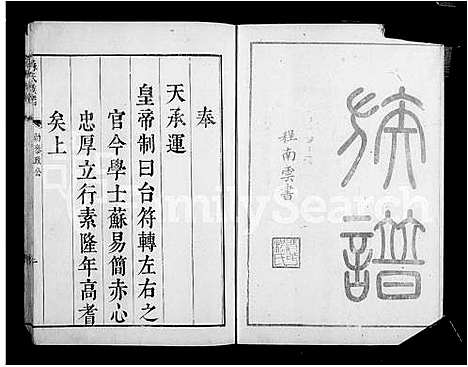 族譜
程南雲書
奉
天承運
皇帝制曰台符轉左右之
官今學士蘇易簡赤心
忠厚立行素隆年高耆
矣上
FamilySearch